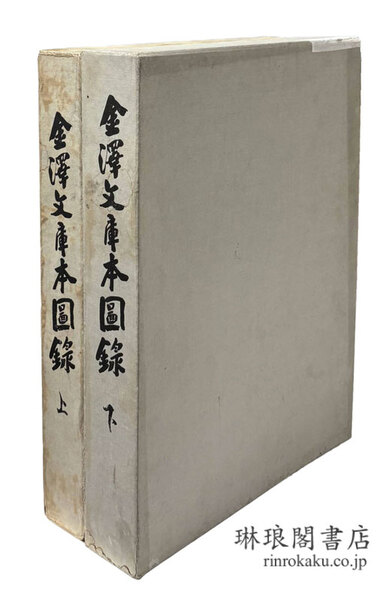 金澤文庫本圖錄 上
金澤文庫本圖錄 下
琳琅閣書店
rinrokaku.co.jp